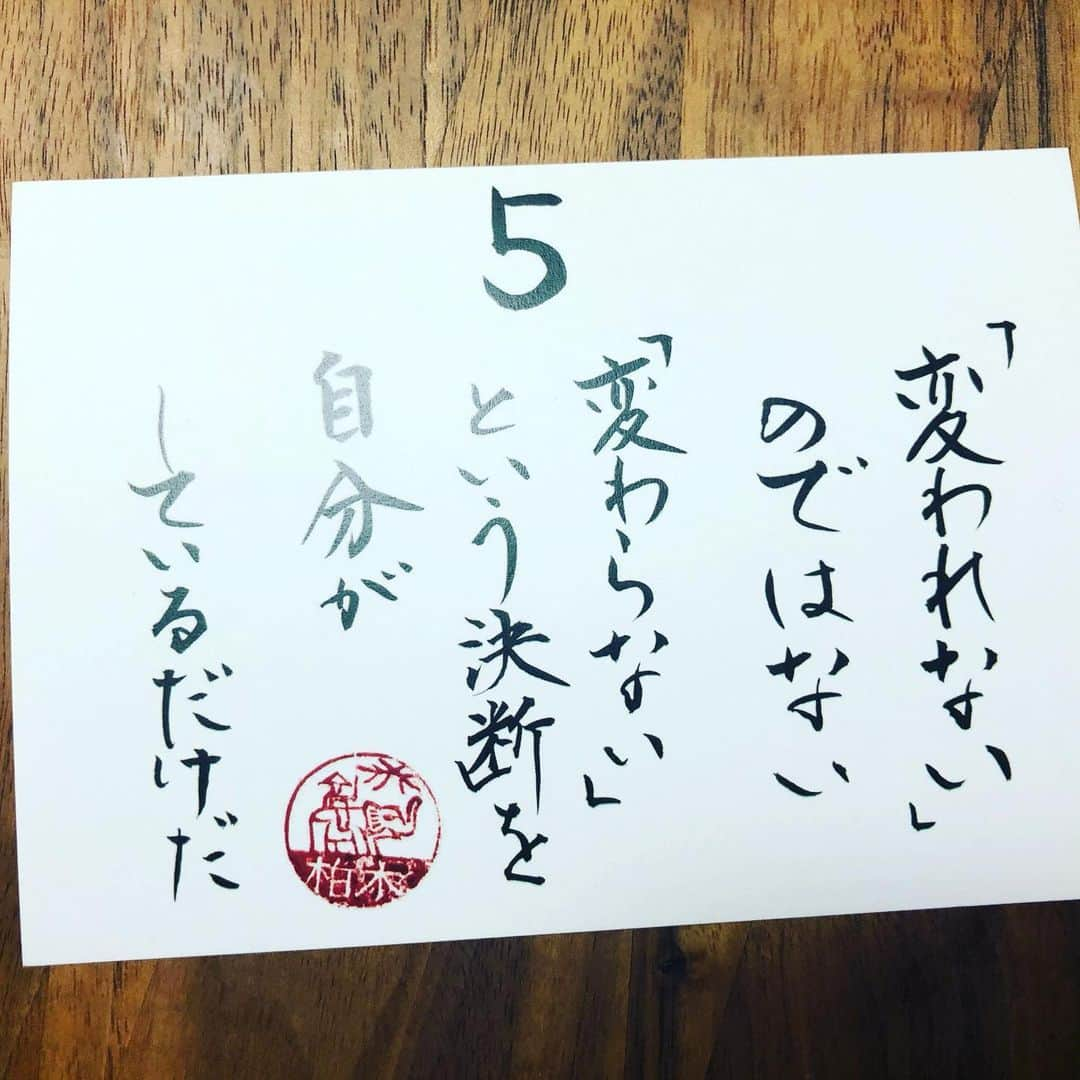 5
「変われない」
のではない
「変わらない」
という決断を
自分が
しているだけだ
柏木